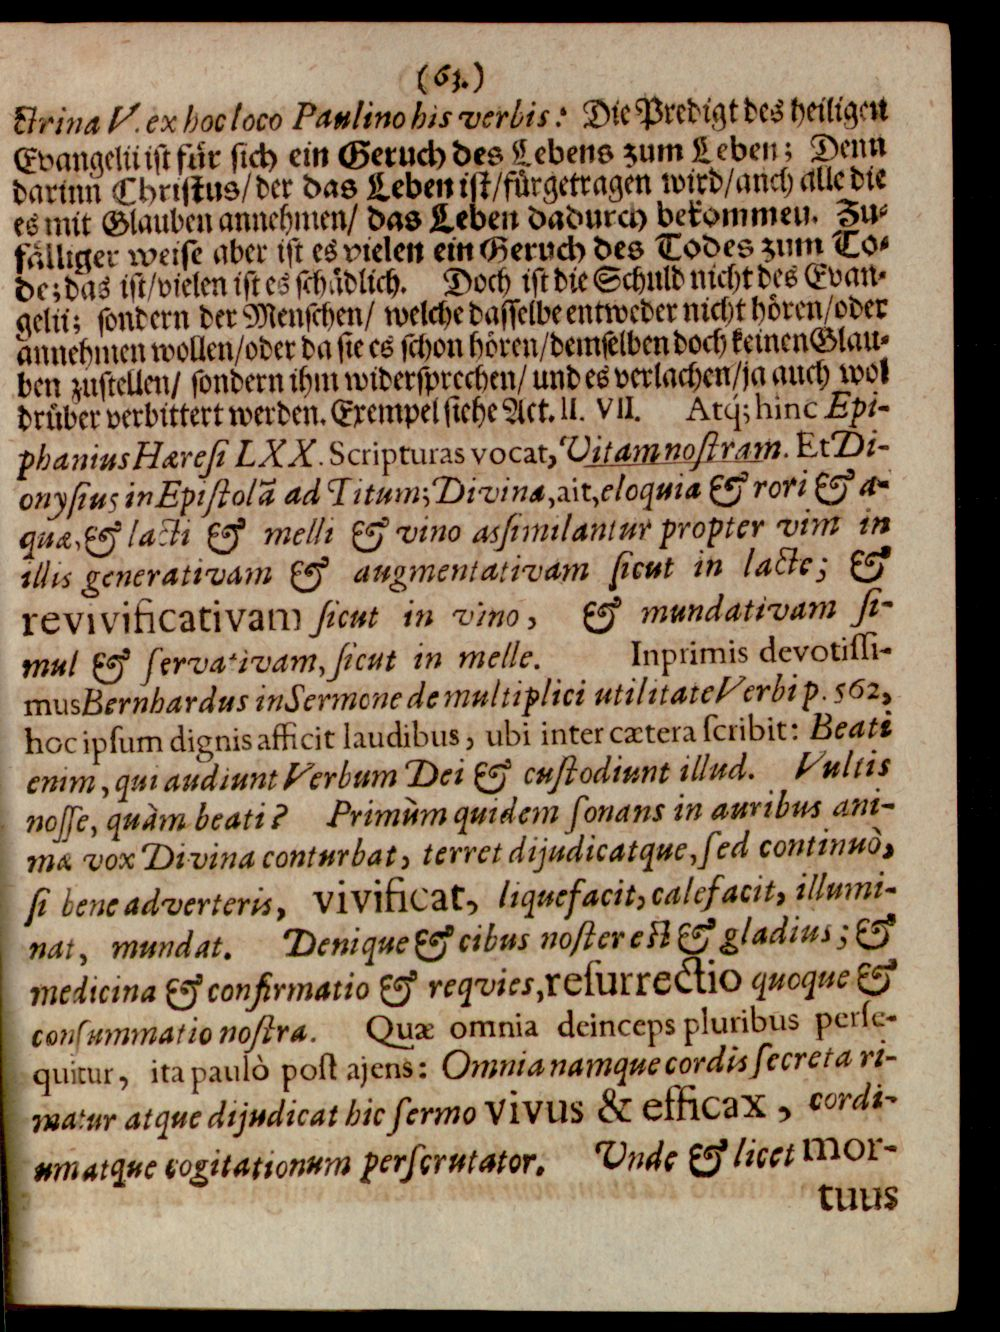 (63.)
ctrina V. ex hoc loco Paulino his verbis: Die Predigt des heiligen
Evangelii ist für sich ein Geruch des Lebens zum Leben; Denn
darinn Christus/der das Leben ist/fürgetragen wird/auch alle die
es mit Glauben annehmen/ das Leben dadurch bekommen. Zu-
fälliger weise aber ist es vielen ein Geruch des Todes zum To-
de; das ist/vielen ist es schädlich. Doch ist die Schuld nicht des Evan-
gelii; sondern der Menschen/ welche dasselbe entweder nicht hören/oder
annehmen wollen/oder da sie es schon hören/demselben doch keinen Glau-
ben zustellen/ sondern ihm widersprechen/ und es verlachen/ja auch wol
drüber verbittert werden. Exempel siehe Act. II. VII. Atq́; hinc Epi-
phanius Hæresi LXX. Scripturas vocat, Vitam nostram. Et Di-
onysius in Epistolâ ad Titum; Divina, ait, eloquia & rori & a-
quæ, & lacti & melli & vino assimilantur propter vim in
illis generativam & augmentativam sicut in lacte; &
revivificativam sicut in vino, & mundativam si-
mul & servativam, sicut in melle. Inprimis devotissi-
mus Bernhardus in Sermone de multiplici utilitate Verbi p. 562,
hoc ipsum dignis afficit laudibus, ubi inter cætera scribit: Beati
enim, qui audiunt Verbum Dei & custodiunt illud. Vultis
nosse, quàm beati? Primùm quidem sonans in auribus ani-
mæ vox Divina conturbat, terret dijudicatque, sed continuò,
si bene adverteris, vivificat, liquefacit, calefacit, illumi-
nat, mundat. Denique & cibus noster est & gladius; &
medicina & confirmatio & reqvies, resurrectio quoque &
consummatio nostra. Quæ omnia deinceps pluribus perse-
quitur, ita paulò post ajens: Omnia namque cordis secreta ri-
matur atque dijudicat hic sermo vivus & efficax, cordi-
um atque cogitationum perscrutator. Unde & licet mor-
tuus